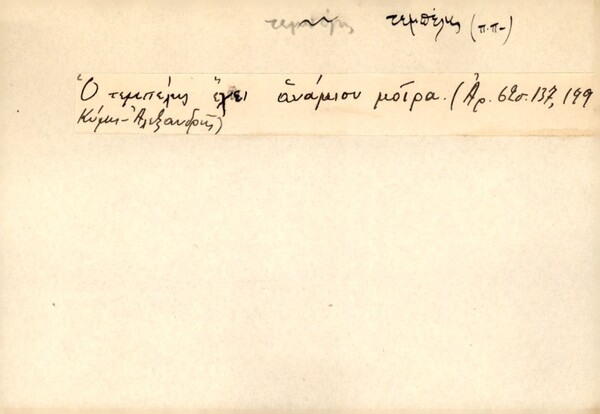 τεμπέλης τεμπέλης (π.π-)
Ὁ τεμπέλης ἔχει ἀνάμισου μοῖρα. (Ἀρ. 62σ. 137, 199
Κύμη-Ἀλεξανδρῆς)